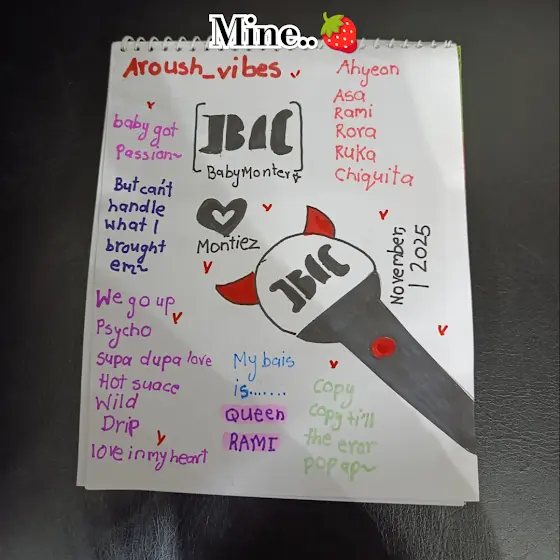 Mine..🍓
Aroush_vibes
Ahyeon
Asa
Rami
Rora
Ruka
Chiquita
baby got
passion~
But can't
handle
what I
brought
em~
BabyMonter
Montiez
November,
1 2025
We go up
Psycho
supa dupa love
Hot suace
Wild
Drip
love in my heart
My bais
is.......
Queen
RAMI
Copy
copy till
the eror
pop ap~